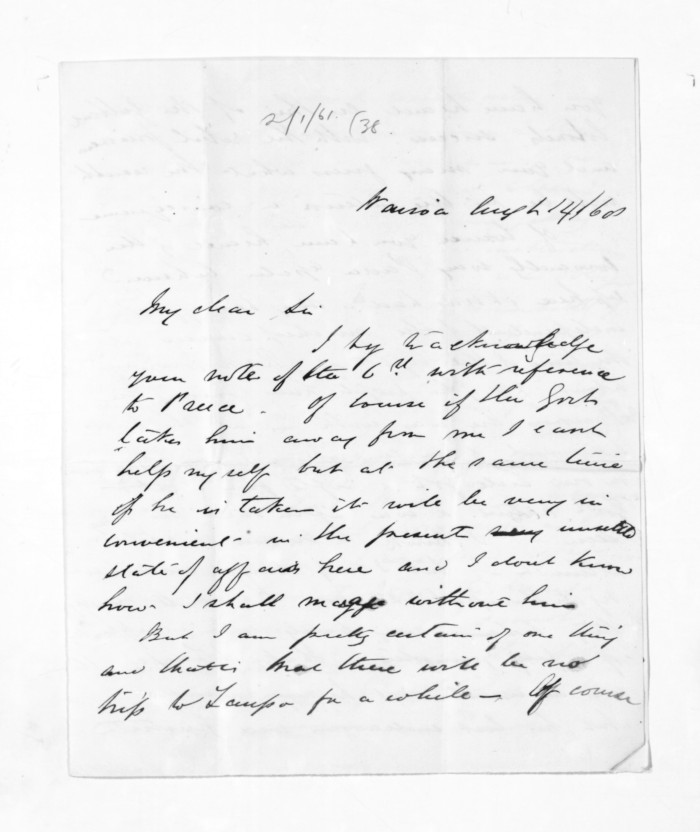 2/1/61. (38.
Wairoa Augt 14/60
My dear Sir
I beg to acknowledge
your note of the 6th with reference
to Preece. Of course if the Govt
takes him away from me I cant
help myself but at the same time
if he is taken it will be very in
convenient in the present very unsettled
state of affairs here and I dont know
how I shall manage without him
But I am pretty certain of one thing
and that is that there will be no
trip to Taupo for a while - Of course